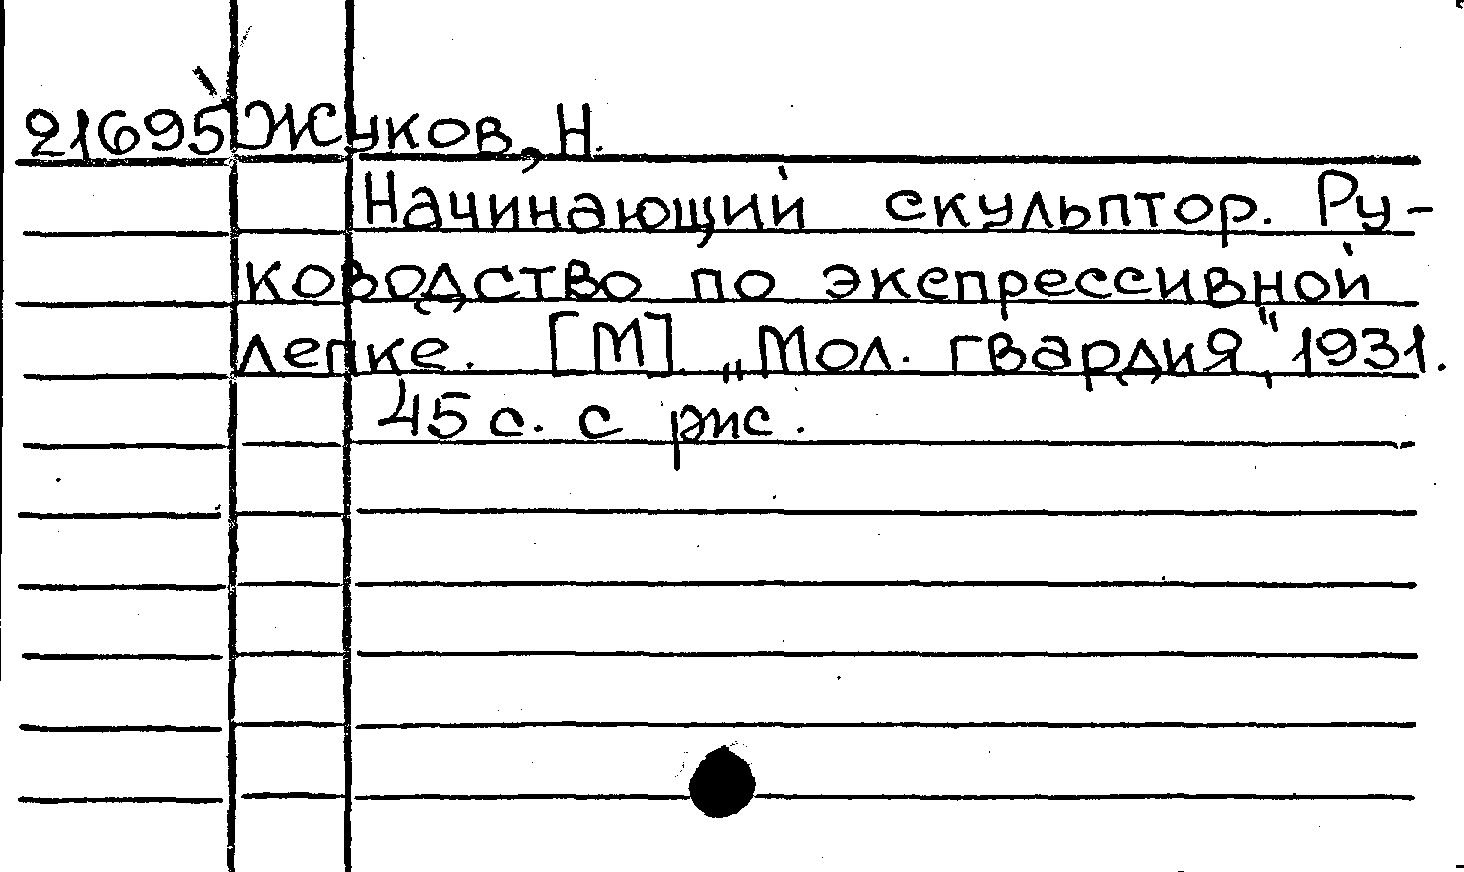 21695 Жуков, Н.
Начинающий скульптор. Ру-
ководство по экспрессивной
лепке. [М] „Мол. гвардия", 1931.
45 с. с рис.